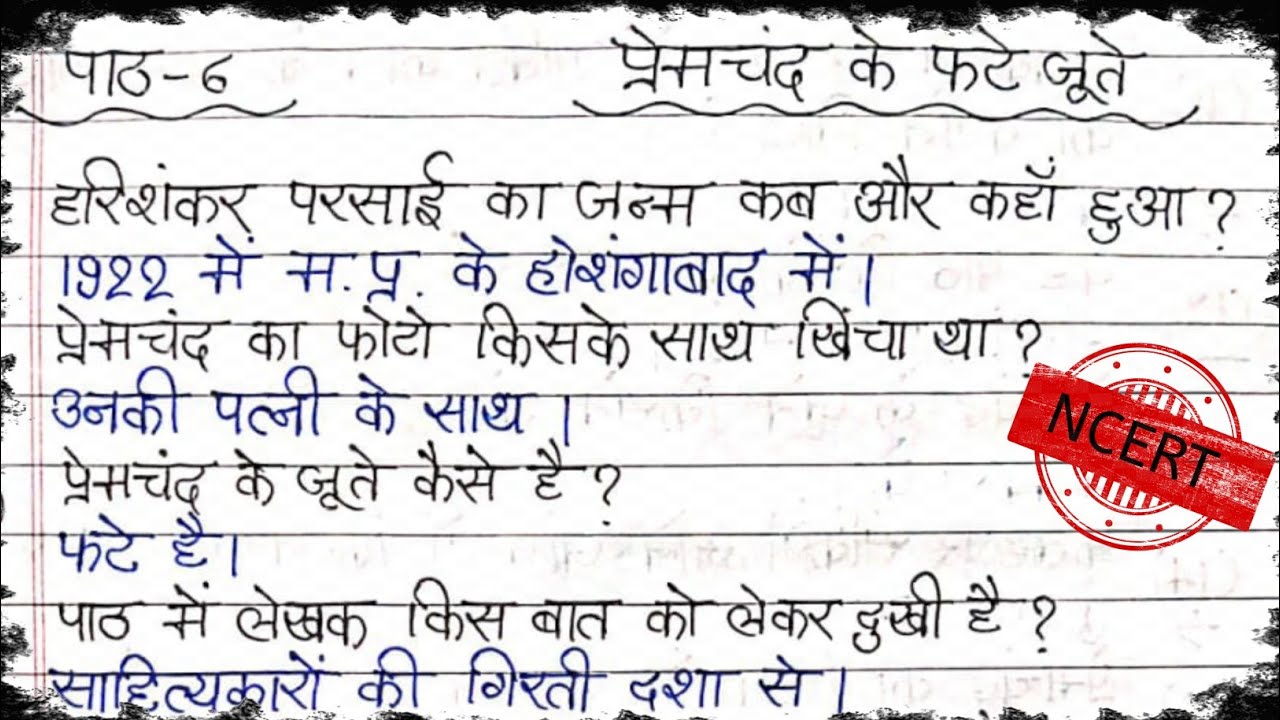 पाठ-6 प्रेमचंद के फटे जूते
हरिशंकर परसाई का जन्म कब और कहाँ हुआ ?
1922 में म. प्र. के होशंगाबाद में ।
प्रेमचंद का फोटो किसके साथ खिंचा था ?
उनकी पत्नी के साथ ।
प्रेमचंद के जूते कैसे है ?
फटे है ।
पाठ में लेखक किस बात को लेकर दुखी है ?
साहित्यकारों की गिरती दशा से ।
NCERT